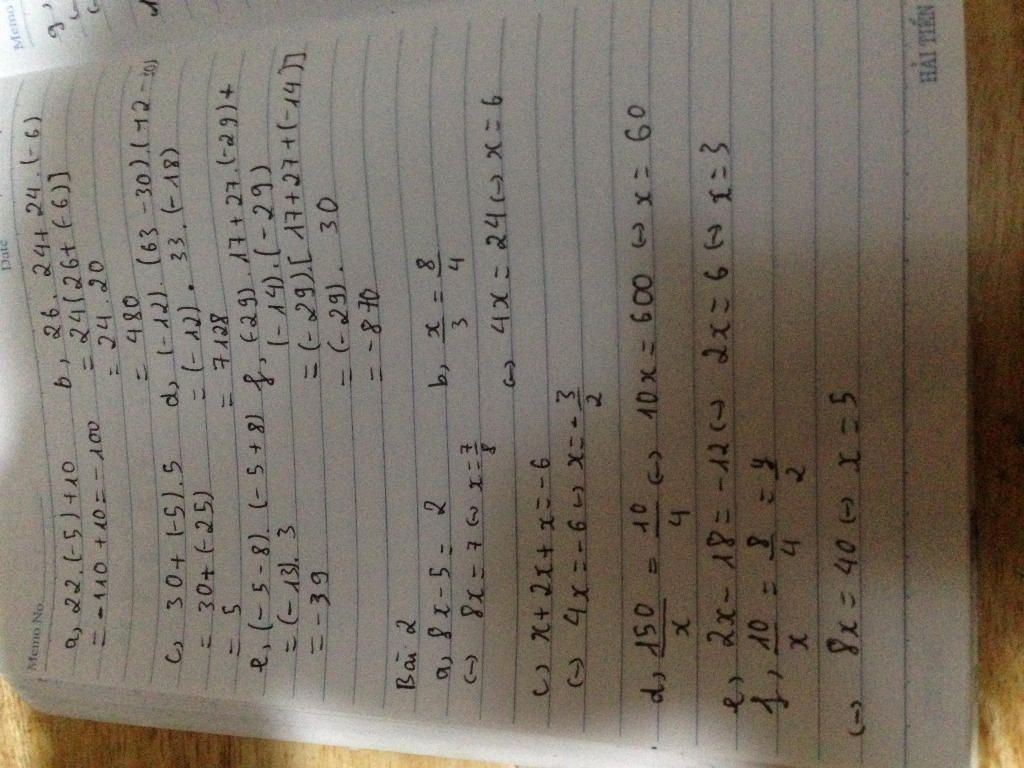 Memo No.
Date
a, 22.(-5)+10
= -110+10=-100
b, 26.24+24.(-6)
= 24(26+(-6)]
= 24.20
= 480
c, 30+(-5).5
= 30+(-25)
= 5
d, (-12).(63-30).(-12-30)
= (-12). 33.(-18)
= 7128
e, (-5-8).(-5+8)
= (-13). 3
= -39
f, (-29).17+27.(-29)+
(-14).(-29)
= (-29).[17+27+(-14)]
= (-29). 30
= -870
Bài 2
a, 8x-5= 2
(-) 8x=7 (-) x=7/8
b, x/3 = 8/4
(-) 4x=24 (-) x=6
c, x+2x+x=-6
(-) 4x=-6 (-) x=-3/2
d, 150/x = 10/4 (-) 10x=600 (-) x=60
e, 2x-18=-12 (-) 2x=6 (-) x=3
f, 10/x = 8/4 = y/2
(-) 8x=40 (-) x=5
HẢI TIẾN